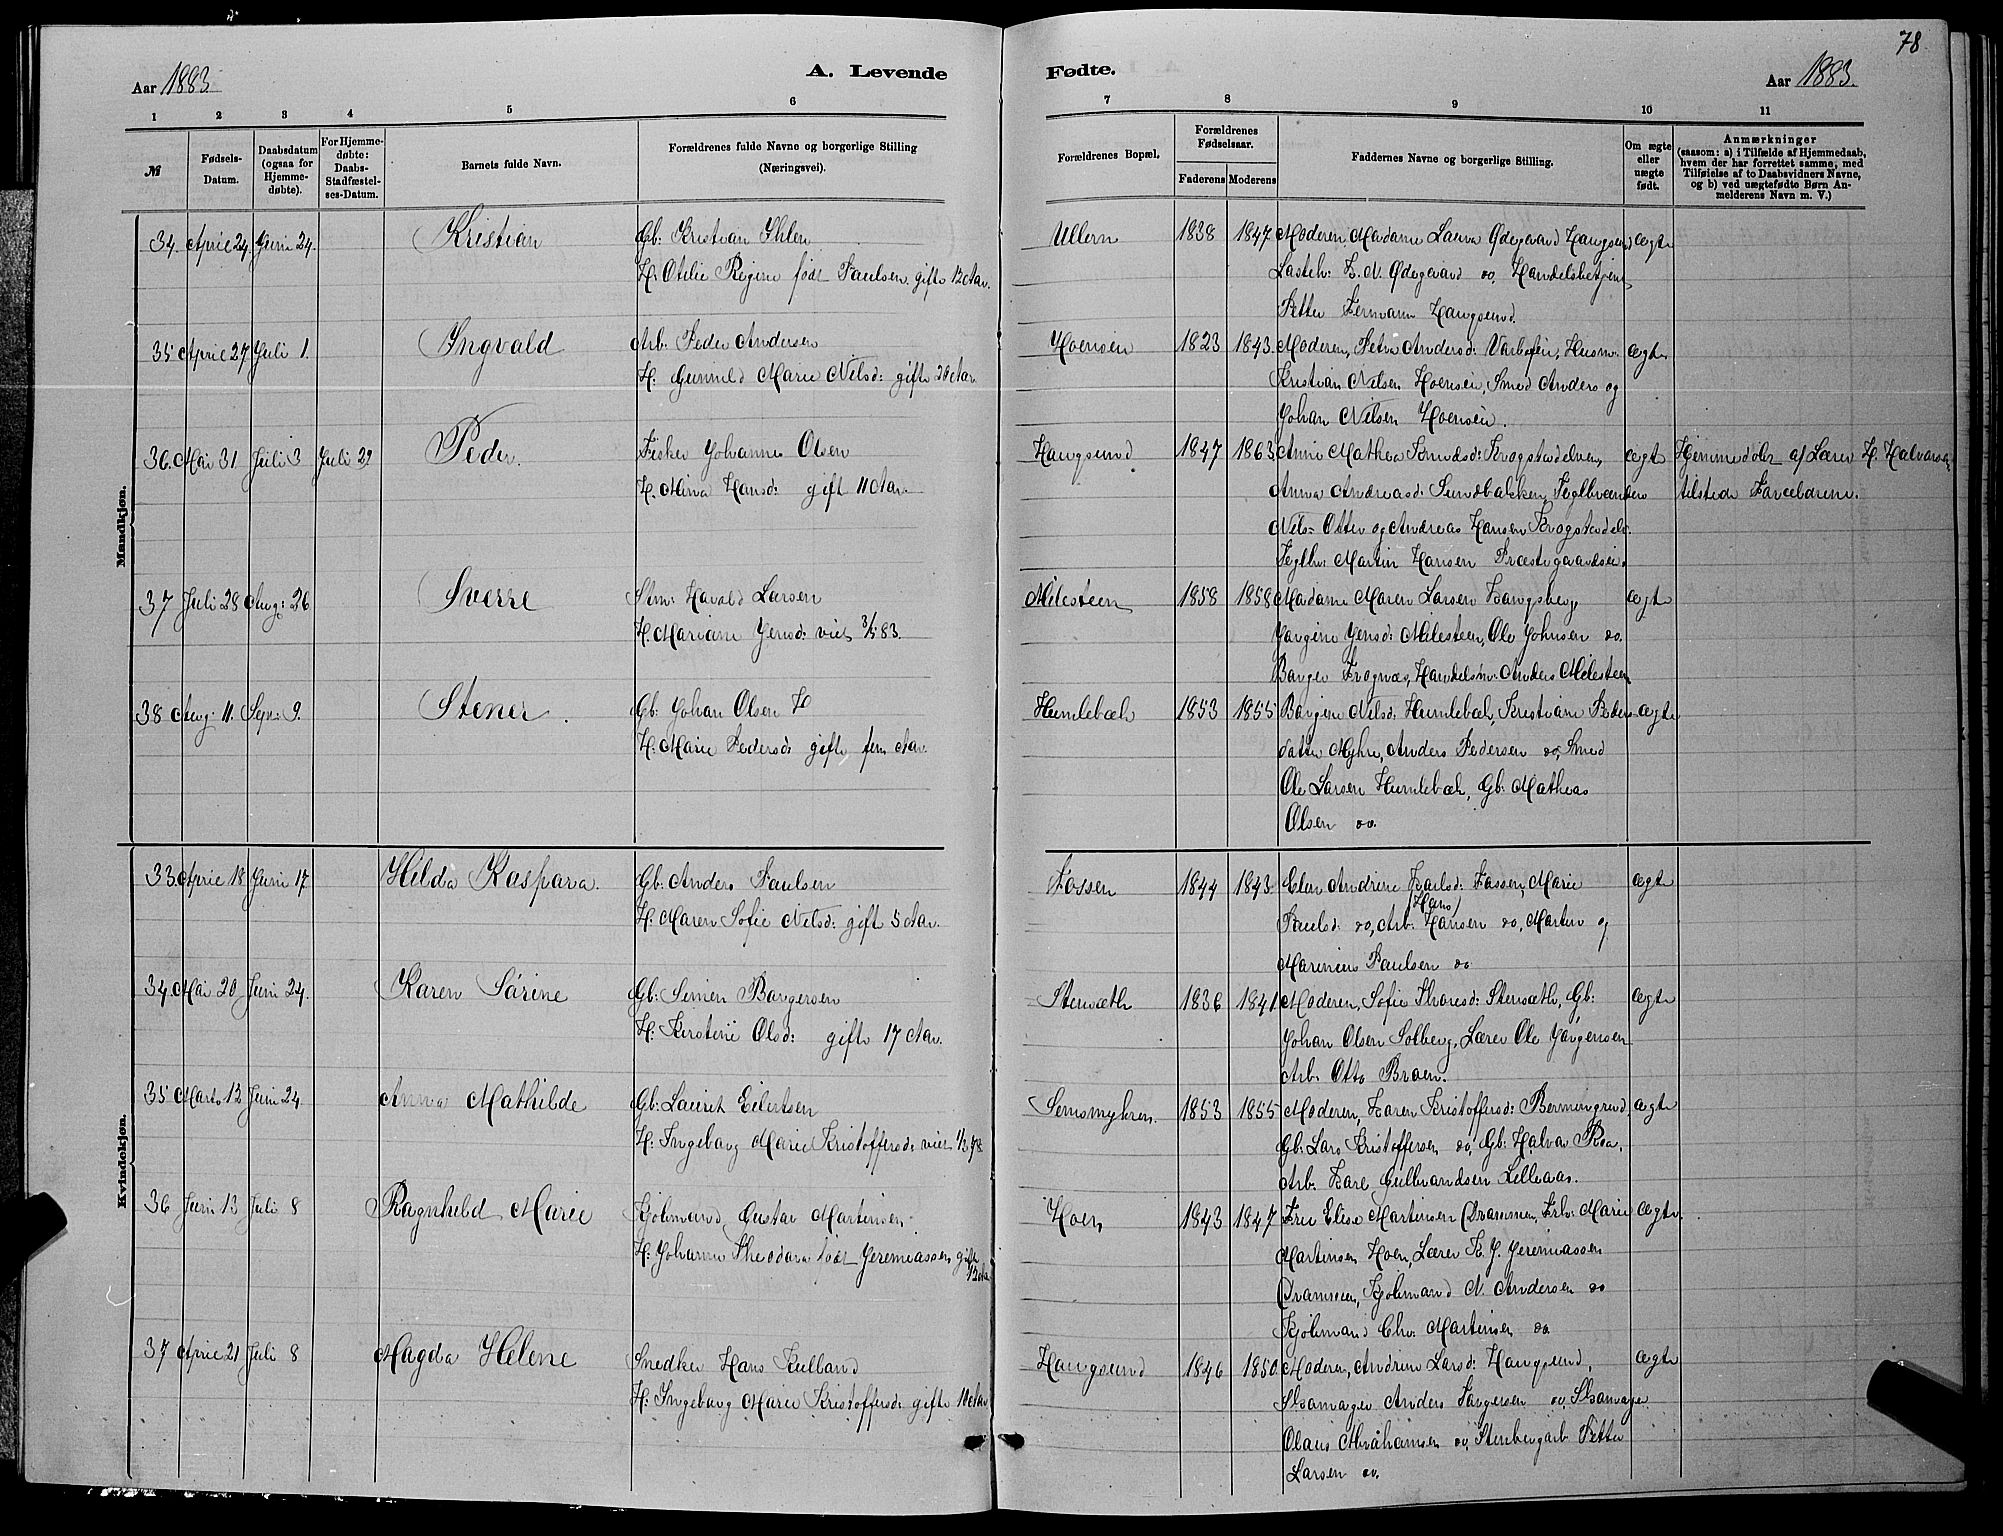 78
Aar 1883.
A. Levende
Fødte.
Aar 1883.
1 2 3 4 5 6 7 8 9 10 11
№
Fødsels-Datum.
Daabsdatum (ogsaa for Hjemmedøbte).
For Hjemmedøbte: Daabs-Stadfæstelses-Datum.
Barnets fulde Navn.
Forældrenes fulde Navne og borgerlige Stilling (Næringsvei).
Forældrenes Bopæl.
Forældrenes Fødselsaar.
Faderens Moderens
Faddernes Navne og borgerlige Stilling.
Om ægte eller uægte født.
Anmærkninger
(saasom: a) i Tilfælde af Hjemmedaab, hvem der har forrettet samme, med Tilføielse af to Daabsvidners Navne, og b) ved uægtefødte Børn Anmelderens Navn m. V.)
Mandkjøn.
34. April 24. Juni 24. Kristian Gb: Kristian Ihlen Ullern 1838 1847 Moderen, Madame Laura Ødegaard Haugsund ægte
H: Otilie Regine født Paulsen gifte 12 Aar. Ødegaard do, Handelsbetjent
Petter Hermann Haugsund.
35 April 27 Juli 1. Ingvald Arb: Peder Andersen Hoenseie 1823 1843. Moderen, Petra Andersd: Varbeseie, Husm: ægte
H: Gunnild Marie Nilsd: gifte 20 Aar Kristian Nilsen Hoenseie, Smed Anders og
Johan Nilsen Hoenseie.
36. Mai 31 Juli 3 Juli 29 Peder. Fisker Johannes Olsen Haugsund 1847 1863 Anne Mathea Knudsd: Krogstadelven, ægte Hjemmedøbt af Lærer H. Halvorsen
H. Mina Hansd: gift 11 Aar. Anna Andreasd: Sundbakken, Teglbrændere tilstede Forældrene.
Nils Otter og Andreas Hansen Krogstadelv.
Teglbr: Martin Hansen Præstegaardseie.
37 Juli 28 Aug: 26 Sverre Stm: Harald Larsen Milesteen 1858 1858 Madame Maren Larsen Kongsberg, ægte
H. Mariane Jensd: viet 3/5 83. Jørgine Jensd: Milesteen, Ole Johnsen do.
Borger Frognæs, Handelsm: Anders Milesteen
38 Aug: 11. Sep: 9. Stener. Gb: Johan Olsen H Humlebæk 1853 1855 Borgine Nilsd: Humlebæk, Kristiane Peders- ægte
H. Marie Pedersd: gifte fem Aar datter Myhre, Anders Pedersen do, Smed
Ole Larsen Humlebæk, Gb: Mathias
Olsen do.
Kvindekjøn.
33. April 18 Juni 17. Hilda Kaspara. Gb: Anders Paulsen Fossen 1844 1843. Elen Andrine Karlsd: Fossen, Marie ægte
(Hans)
H: Maren Sofie Nilsd: gift 5 Aar. Paulsd: do, Arb: Hansen do, Martin og
Marinius Paulsen do
34. Mai 20 Juni 24. Karen Sørine Gb: Simen Borgersen Stensæth 1836 1841. Moderen, Sofie Thoresd: Stensæth, Gb: ægte
H: Kirstine Olsd: gifte 17 Aar. Johan Olsen Solberg, Lærer Ole Jørgensen
Arb: Otto Braen.
35 Marts 12 Juni 24. Anna Mathilde Gb: Laurits Eilertsen Semsmyhren. 1853 1855 Moderen, Karen Kristoffersd: ægte
H: Ingeborg Marie Kristoffersd: viet Gb: Lars Kristoffersen do, Gb: Halvor Roa,
Arb: Kare Gulbrandsen Lilleaas.
36 Juni 13 Juli 8 Ragnhild Marie Kjøbmand Gustav Martinsen Hoen 1843 1847 Fru Elise Martinsen Drammen, Frk: Marie ægte.
H: Johanne Theodora født Jeremiassen gift Martinsen Hoen, Lærer K. J. Jeremiassen
12 Aar Drammen, Kjøbmand N. Andersen do
Kjøbmand Chr. Martinsen do.
37 April 21 Juli 8 Magda Helene Snedker Hans Kulland Haugsund 1846 1850. Moderen, Andrine Larsd: Haugsund, ægte
H: Ingeborg Marie Kristoffersd: gifte 10 Aar Skomager Anders Jørgensen do, Skomager
Olaus Abrahamsen do, Petter
Larsen do.